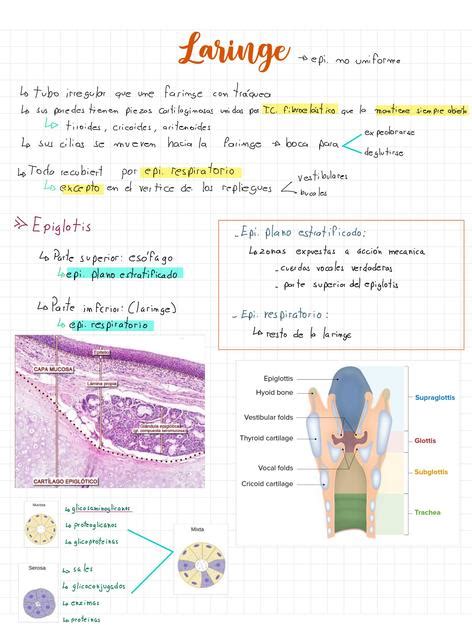 Laringe → epi. no uniforme
↳ tubo irregular que une faringe con tráquea
↳ sus paredes tienen piezas cartilaginosas unidas por TC. fibroelástico que la mantiene siempre abierta
↳ tiroides, cricoides, aritenoides
↳ sus cilias se mueven hacia la faringe → boca para
expectorarse
deglutirse
↳ Todo recubiert por epi. respiratorio
↳ excepto en el vertice de los repliegues
vestibulares
bucales
Epiglotis
↳ Parte superior: esófago
↳ epi. plano estratificado
↳ Parte inferior: (laringe)
↳ epi. respiratorio
- Epi. plano estratificado:
↳ zonas expuestas a acción mecanica
- cuerdas vocales verdaderas
- parte superior del epiglotis
- Epi. respiratorio:
↳ resto de la laringe
Epitelio
CAPA MUCOSA
Lámina propia
Glándula epiglótica
gl. compuesta seromucosa
CARTÍLAGO EPIGLÓTICO
Epiglottis
Hyoid bone
Vestibular folds
Thyroid cartilage
Vocal folds
Cricoid cartilage
Supraglottis
Glottis
Subglottis
Trachea
Mucosa
↳ glicosaminoglicanos
↳ proteoglicanos
↳ glicoproteinas
Mixta
Serosa
↳ sales
↳ glicoconjugados
↳ enzimas
↳ proteinas